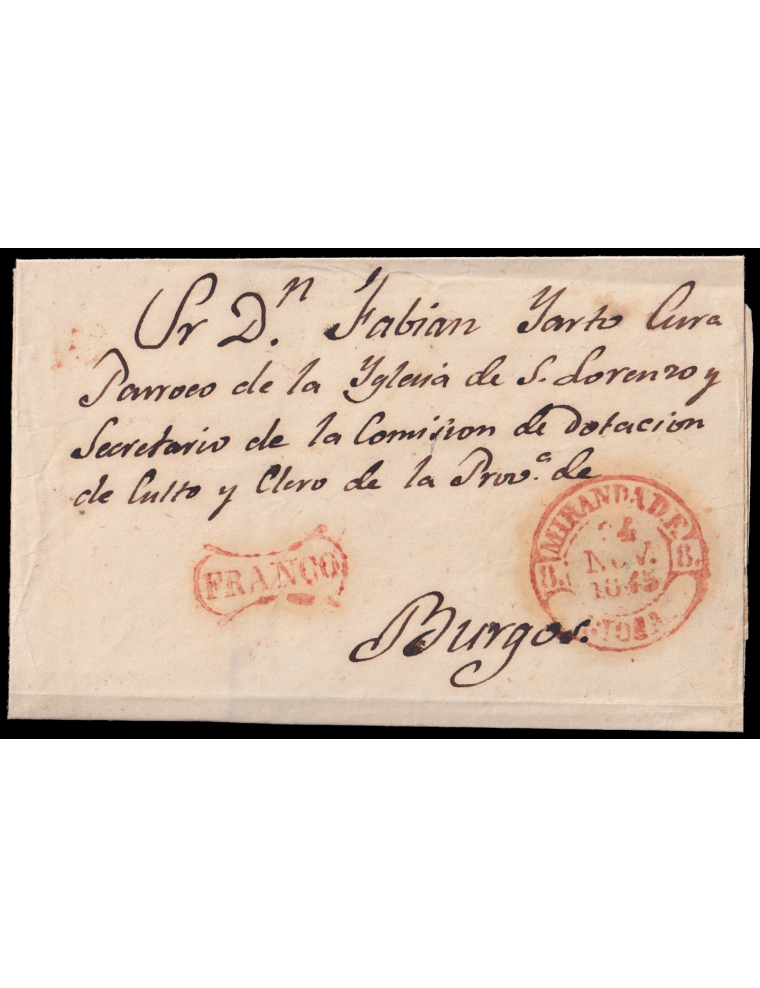 Sr D.n Fabian Yarto Cura
Parroco de la Yglesia de S. Lorenzo y
Secretario de la Comision de Dotacion
de Culto y Clero de la Prov.a de
Burgos.
FRANCO
MIRANDA DE E.
8. 8.
24
NOV.
1845